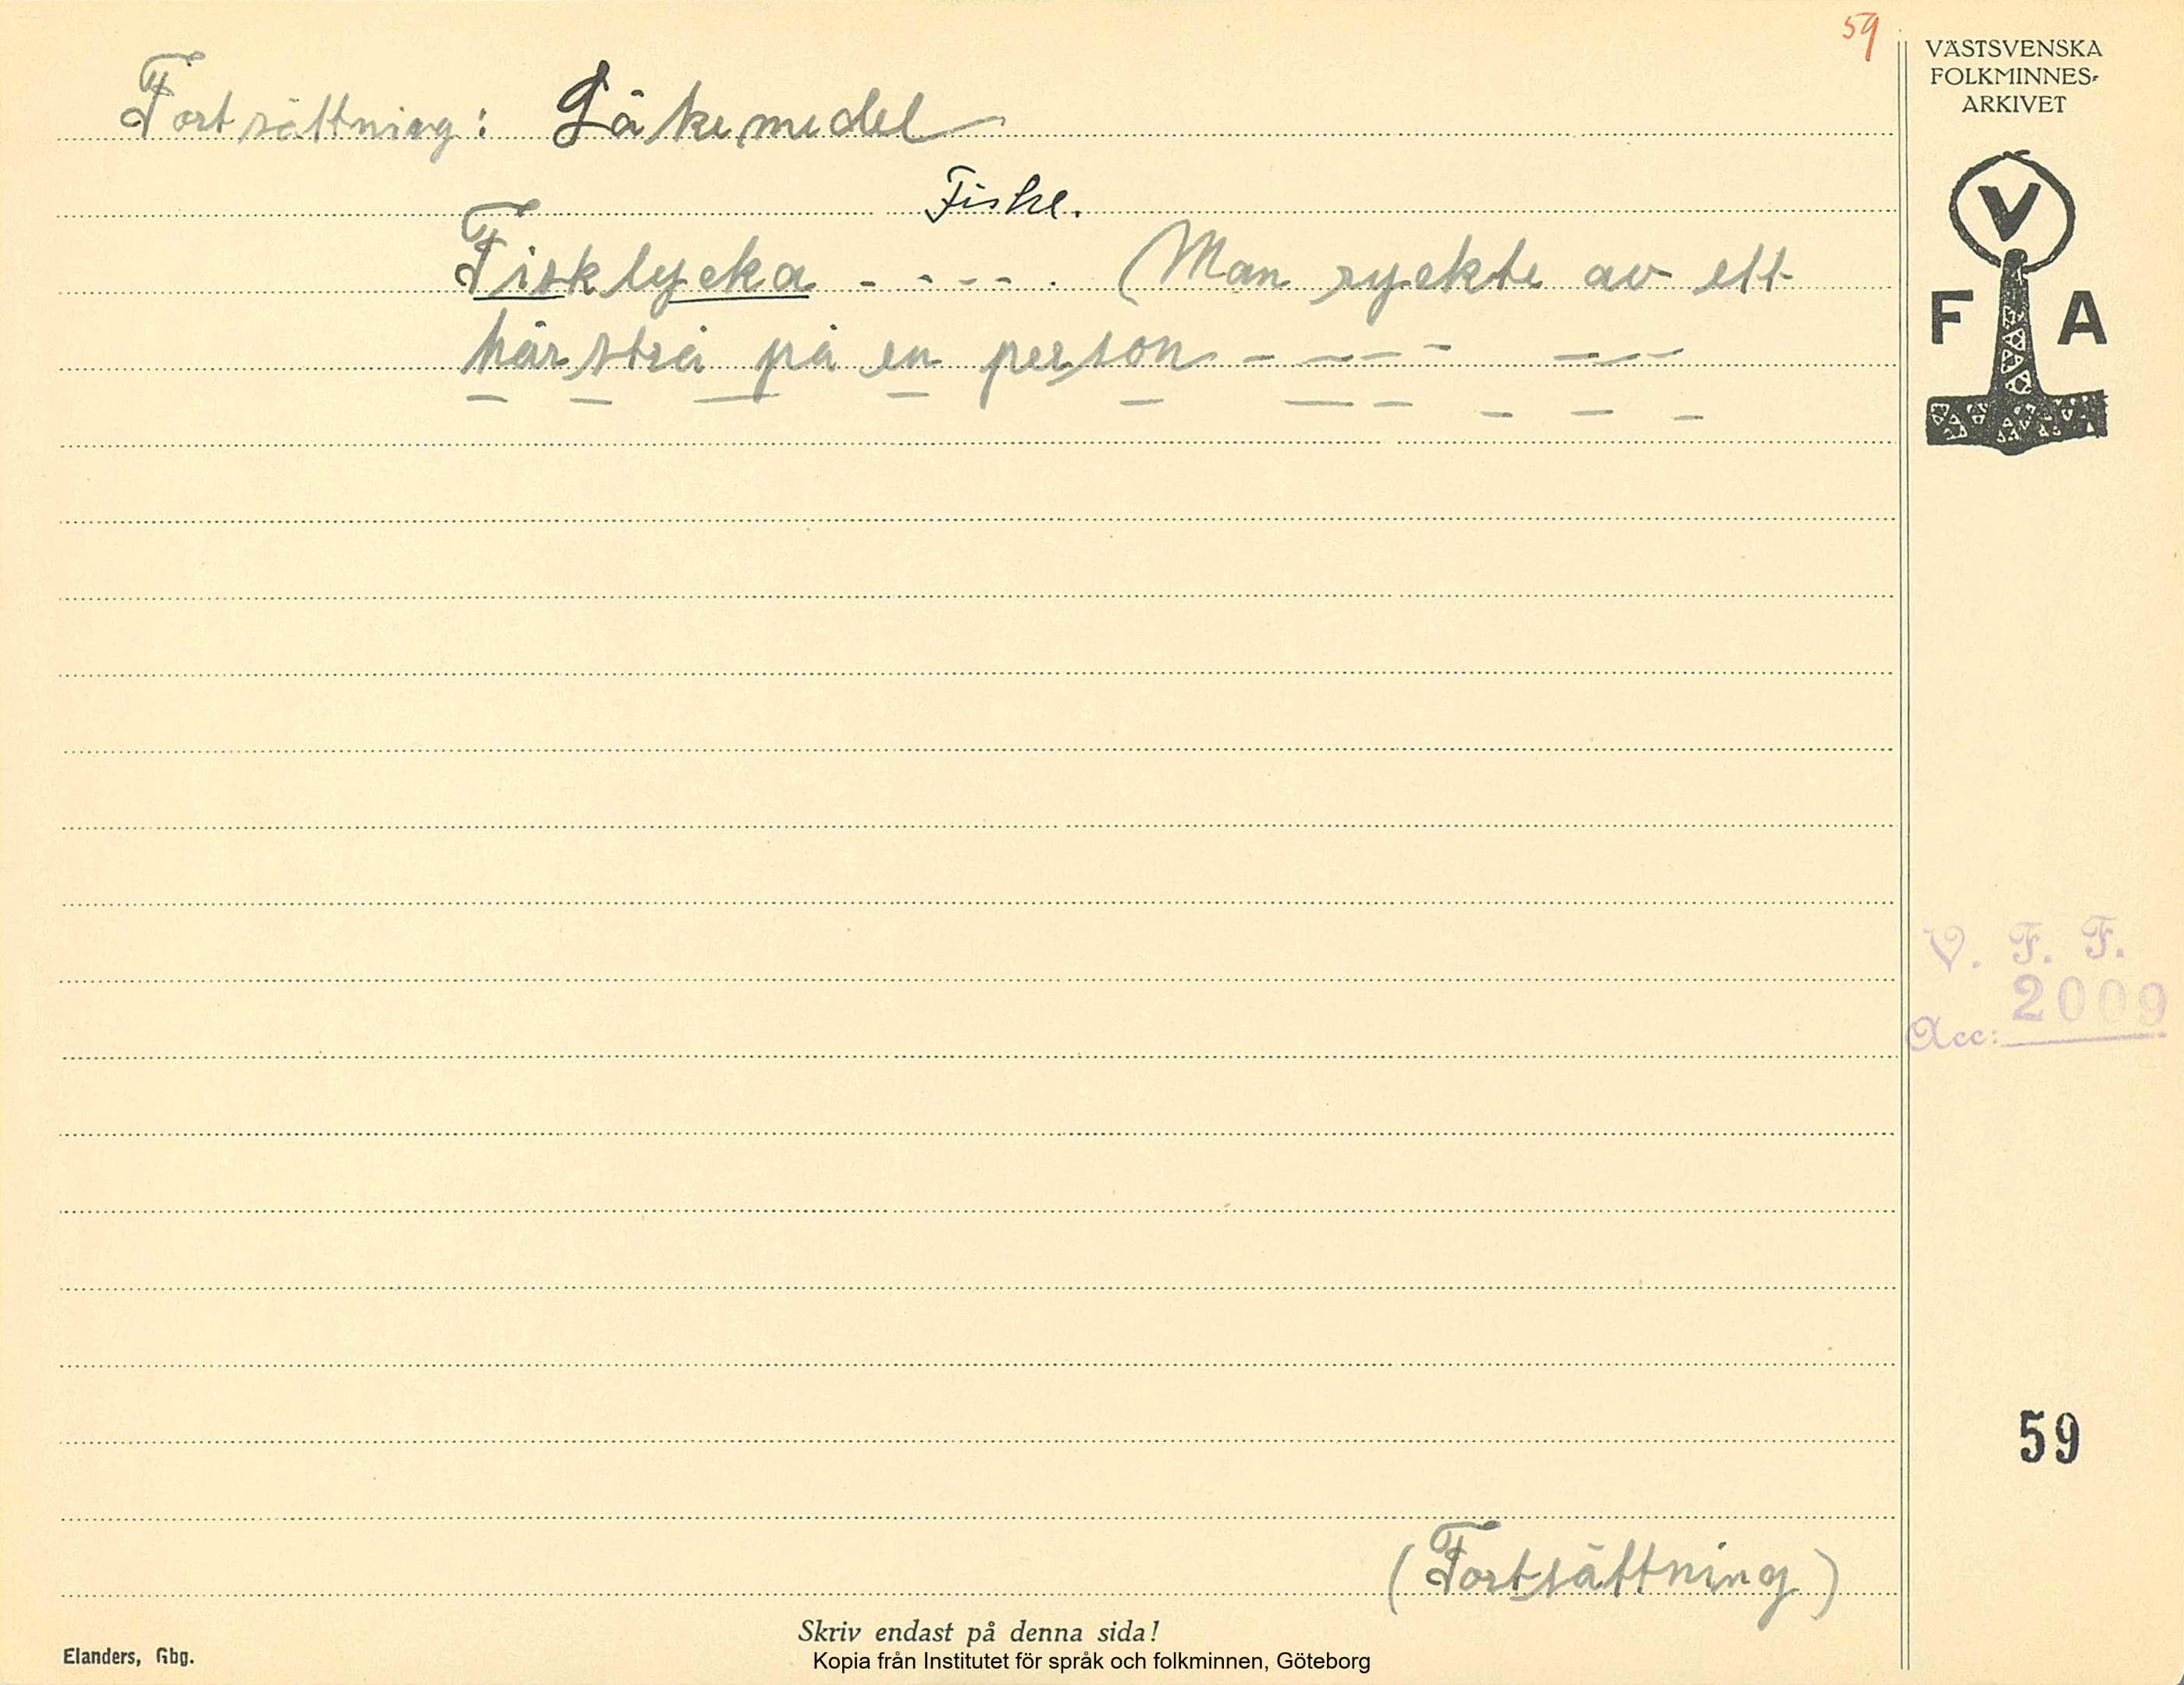 59
Fortsättning: Läkemedel
Fiske.
Fisklycka - - - - . (Man ryckte av ett
hårstrå på en person - - - - - - - -
- - - - - - - - - -
(Fortsättning)
Skriv endast på denna sida!
Elanders, Gbg.
Kopia från Institutet för språk och folkminnen, Göteborg
VÄSTSVENSKA
FOLKMINNES-
ARKIVET
V
F A
V. F. F.
2009
Acc:
59